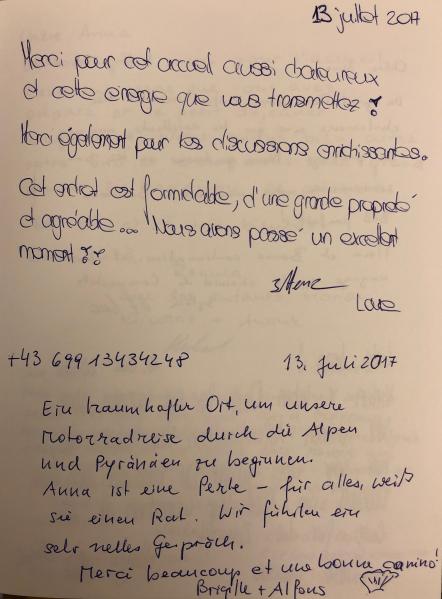 13 juillet 2017
Merci pour cet accueil aussi chaleureux
et cette énergie que vous transmettez !
Merci également pour les discussions enrichissantes.
Cet endroit est formidable, d'une grande propreté
et agréable... Nous avons passé un excellent
moment !!
+43 699 13434248 13. Juli 2017
Ein traumhafter Ort, um unsere
Motorradreise durch die Alpen
und Pyrenäen zu beginnen.
Anna ist eine Perle – für alles, weiß
sie einen Rat. Wir führten ein
sehr nettes Gespräch.
Merci beaucoup et une bonne camino!
Brigitte + Alfons